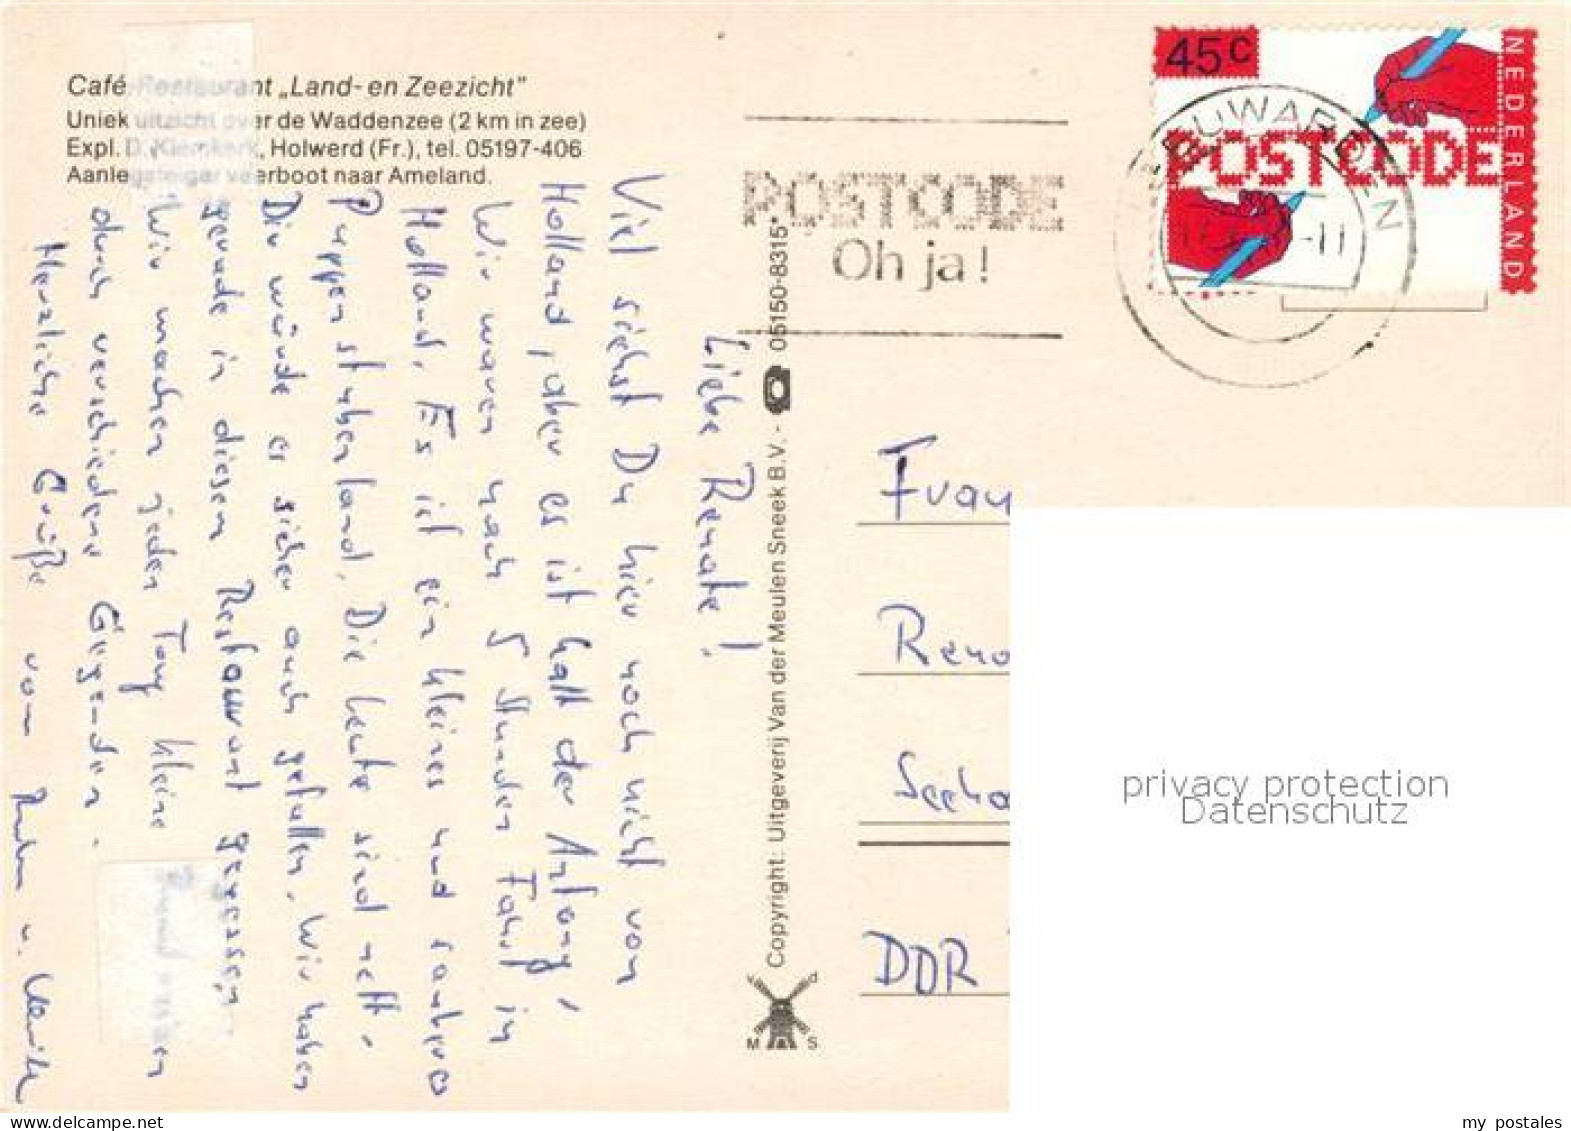 Café-Restaurant „Land- en Zeezicht"
Uniek uitzicht over de Waddenzee (2 km in zee)
Expl. D. Kiemkerk, Holwerd (Fr.), tel. 05197-406
Aanlegsteiger veerboot naar Ameland.
Liebe Renate!
Viel siehst Du hier noch nicht von
Holland, aber es ist halt der Anfang,
Wir waren nach 5 Stunden Fahrt in
Holland. Es ist ein kleines und sauberes
Puppenstubenland. Die Leute sind nett.
Dir würde es sicher auch gefallen. Wir haben
gerade in diesem Restaurant gegessen.
Wir machen jeden Tag kleine
durch verschiedene Gegenden.
Herzliche Grüße von
Copyright: Uitgeverij Van der Meulen Sneek B.V. - ☎ 05150-8315*
V d
M S
POSTCODE
Oh ja!
LEEUWARDEN
-11
45c
POSTCODE
NEDERLAND
Frau
Rena
Seeha
DDR
privacy protection
Datenschutz
my postales